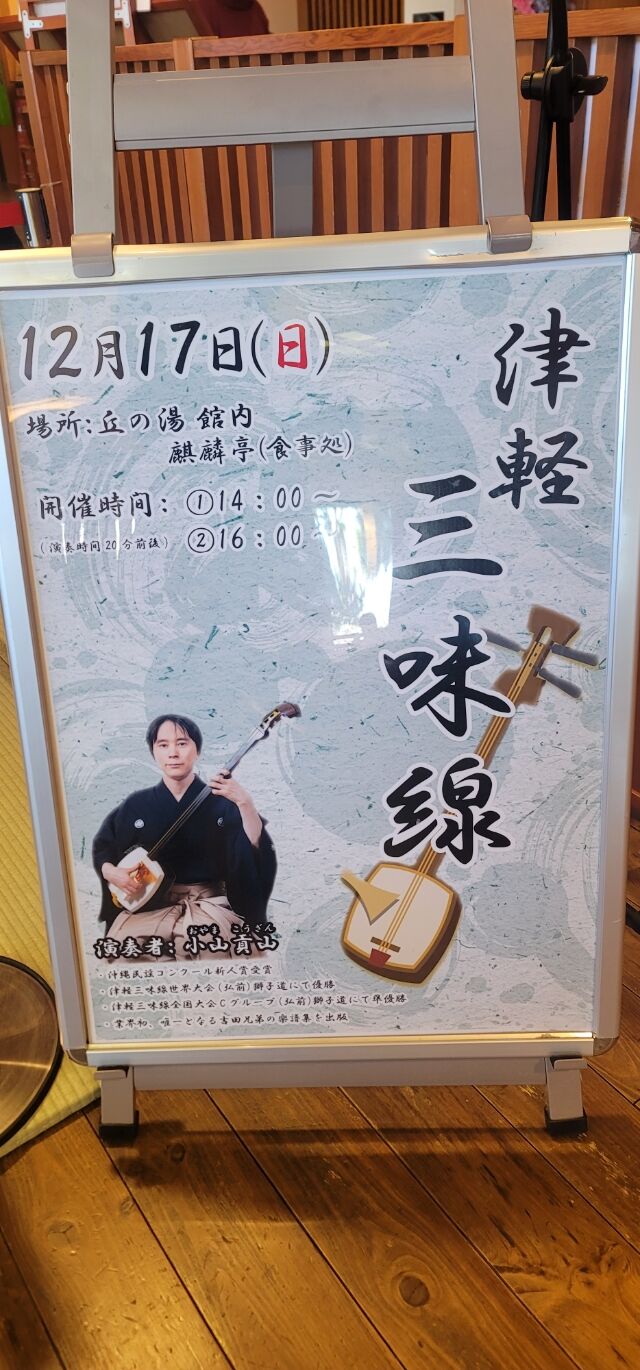 津軽
三味線
12月17日(日)
場所:丘の湯 館内
麒麟亭(食事処)
開催時間: ①14:00〜
(演奏時間20分前後) ②16:00〜
おやま こうざん
演奏者:小山貢山
・沖縄民謡コンクール新人賞受賞
・津軽三味線世界大会(弘前)獅子道にて優勝
・津軽三味線全国大会Cグループ(弘前)獅子道にて準優勝
・業界初、唯一となる吉田兄弟の楽譜集を出版